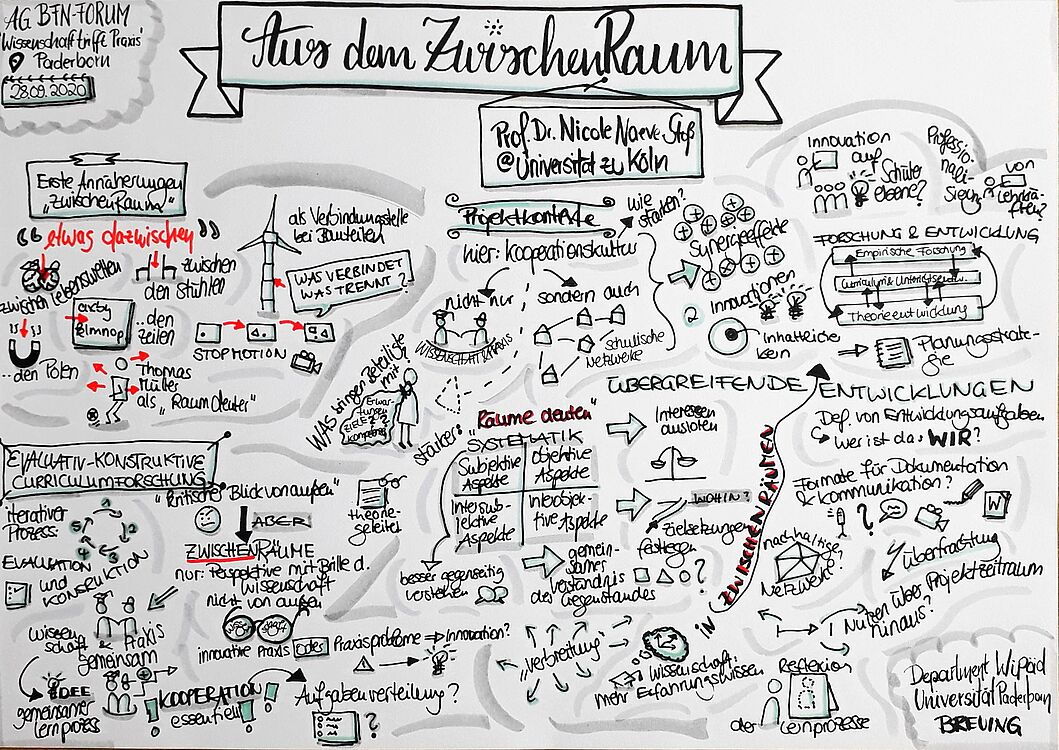 AG BFN-FORUM
'Wissenschaft trifft Praxis'
Paderborn
28.09.2020
Aus dem ZwischenRaum
Prof. Dr. Nicole Naeve-Stoß
@Universität zu Köln
Erste Annäherungen
"ZwischenRaum"
"etwas dazwischen"
zwischen Lebenswelten
zwischen
den Stühlen
..den
Zeilen
..den Polen
Thomas
Müller
als "Raumdeuter"
als Verbindungsstelle
bei Bauteilen
WAS VERBINDET
WAS TRENNT?
STOPMOTION
Projektkontexte
hier: Kooperationskultur
nicht nur
WISSENSCHAFT PRAXIS
sondern auch
Schulische
Netzwerke
wie
stärken?
Synergieeffekte
Innovationen
Inhaltliche
Kern
Innovation
auf
Schüler
ebene?
Professio-
nali-
sierung
von
Lehrkräf-
ten?
FORSCHUNG & ENTWICKLUNG
Empirische Forschung
Theorieentwicklung
Planungsstrate-
gie
Was bringen Beteiligte
mit
Erwar-
tungen
ZIELE?
Kompetenz
stärker:
"Räume deuten"
SYSTEMATIK
Subjektive
Aspekte
objektive
Aspekte
Intersub-
jektive
Aspekte
Interobjek-
tive Aspekte
besser gegenseitig
verstehen
Interessen
ausloten
WOHIN?
Zielsetzungen
festlegen
gemein-
sames
Verständnis
des Gegenstandes
ÜBERGREIFENDE ENTWICKLUNGEN
in ZWISCHENRÄUMEN
Def. von Entwicklungsaufgaben
wer ist das WIR?
Formate für Dokumentation
& Kommunikation?
W
nachhaltige
Netzwerke?
Überfrachtung
Nutzen über Projektzeitraum
hinaus?
EVALUATIV-KONSTRUKTIVE
CURRICULUMFORSCHUNG
iterativer
Prozess:
EVALUATION
und
KONSTRUKTION
"kritischer Blick von außen"
ABER
theorie-
geleitet
ZWISCHENRÄUME
nur: Perspektive mit Brille d.
Wissenschaft
nicht von außen
innovative Praxis oder Praxisprobleme ⇒ Innovation?
Wissen
schaft & Praxis
gemeinsam
IDEE
gemeinsamer
Lernprozess
KOOPERATION
essentiell!
Aufgabenverteilung?
?
"Verbreitung"
Wissenschaft:
mehr Erfahrungswissen
Reflexion
der Lernprozesse
Department WiPäd
Universität Paderborn
BREUING